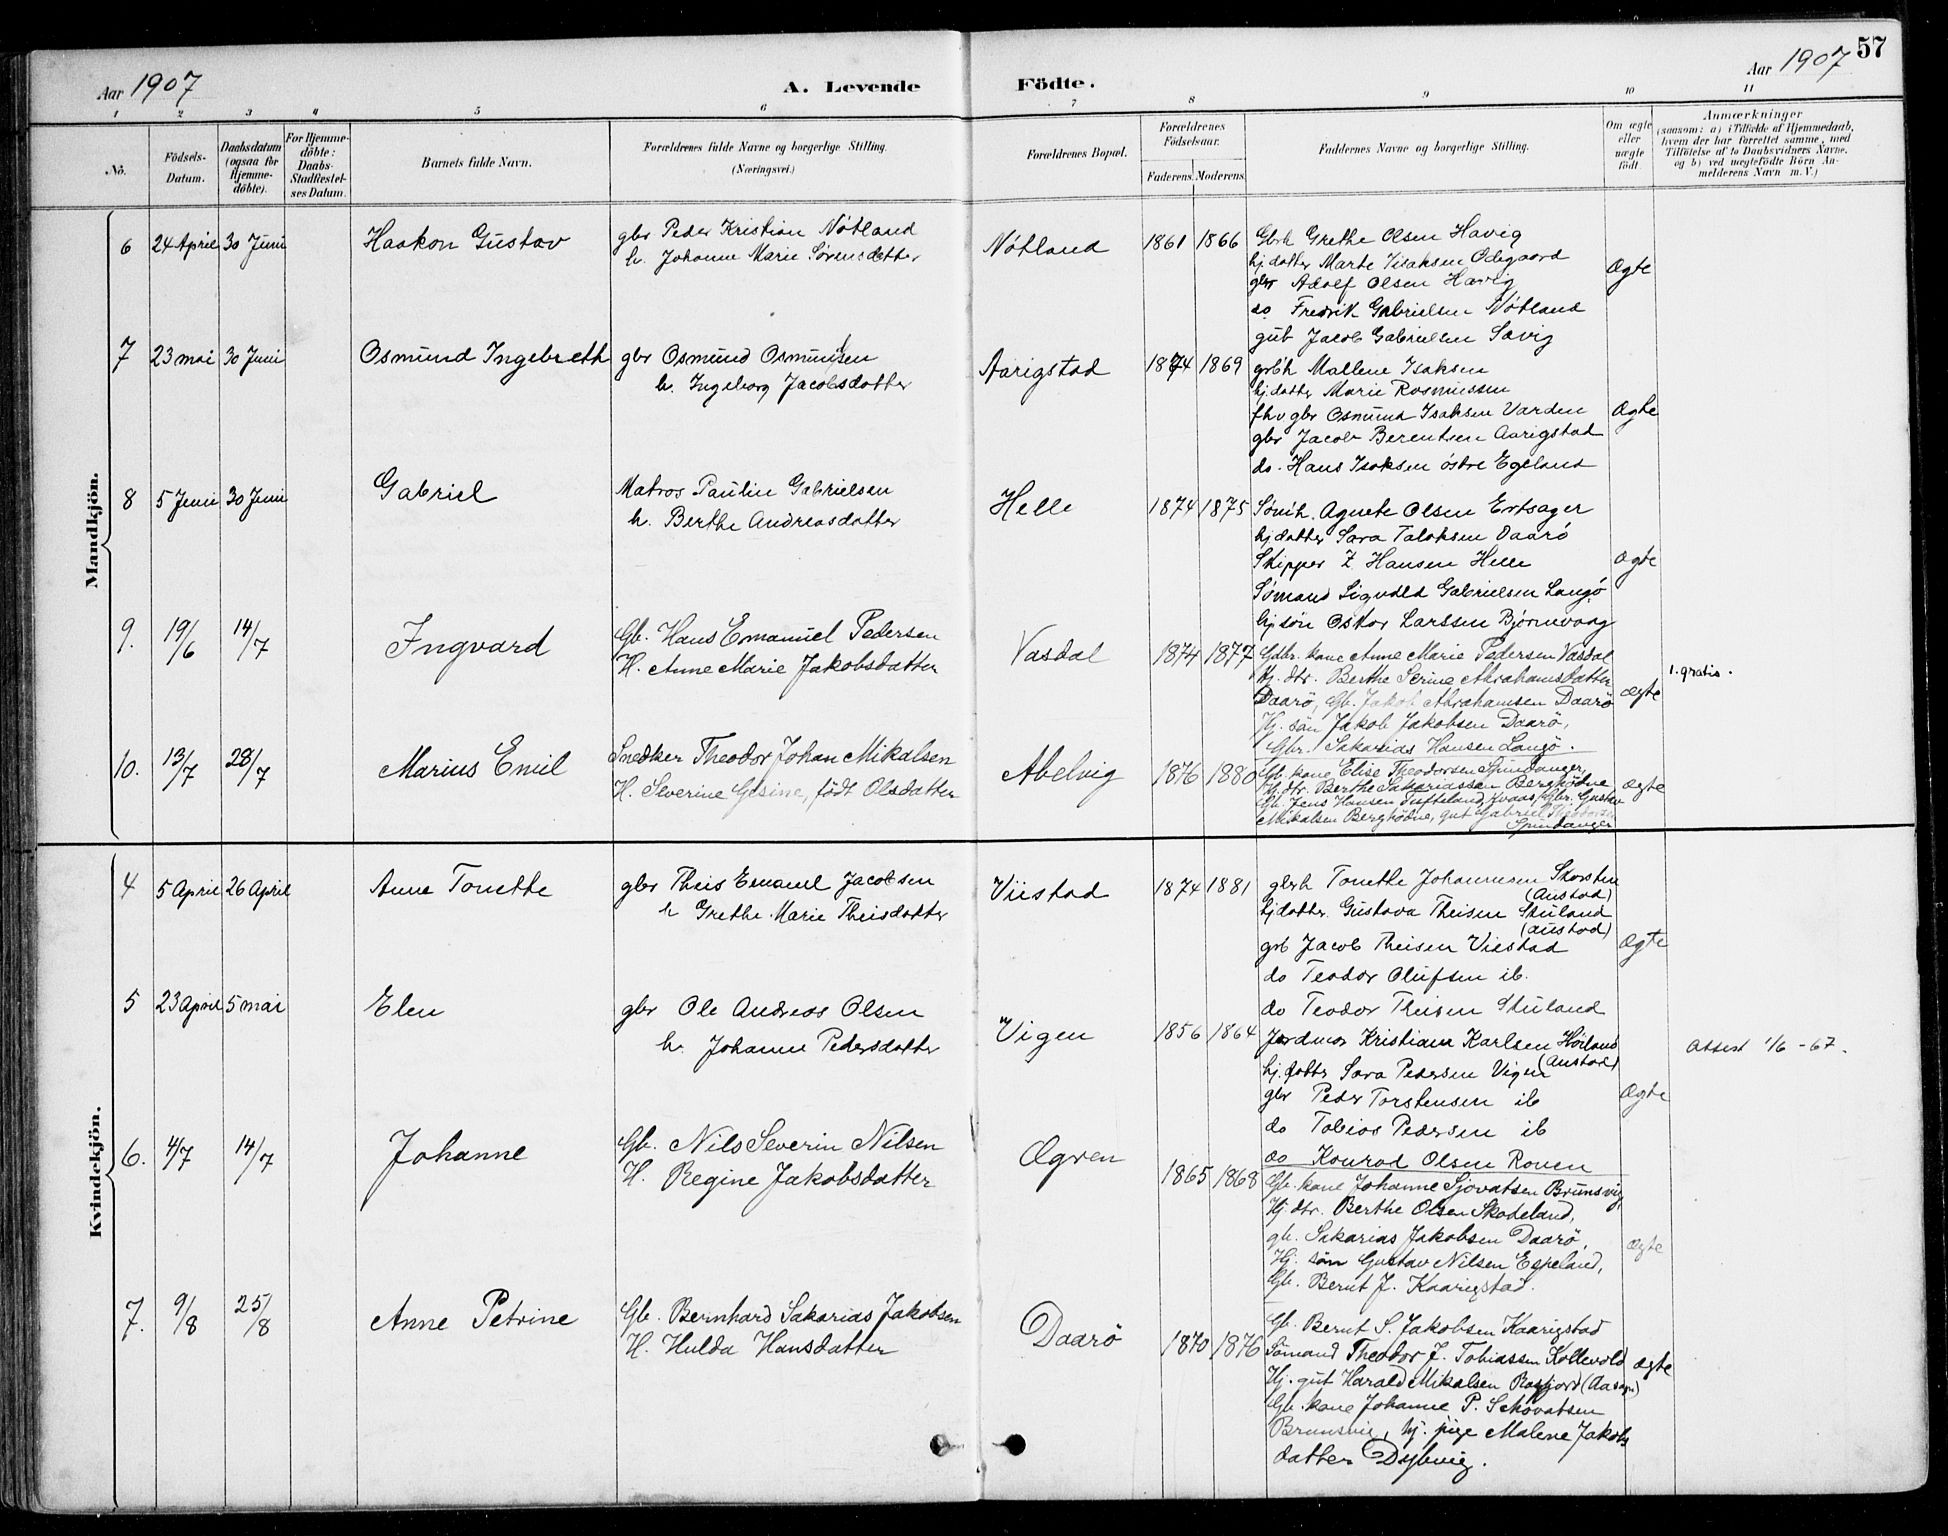 57
Aar 1907
A. Levende Födte.
Aar 1907
1 2 3 4 5 6 7 8 9 10 11
No.
Födsels-Datum.
Daabsdatum (ogsaa for Hjemme-döbte).
For Hjemme-döbte: Daabs-Stadfæstel-ses Datum.
Barnets fulde Navn.
Forældrenes fulde Navne og borgerlige Stilling. (Næringsvei.)
Forældrenes Bopæl.
Forældrenes Födselsaar.
Faderens. Moderens.
Faddernes Navne og borgerlige Stilling.
Om ægte eller uægte födt.
Anmærkninger
(saasom: a) i Tilfælde af Hjemmedaab,
hvem der har forrettet samme, med
Tilföielse af to Daabsvidners Navne,
og b) ved uegtefödte Börn An-
melderens Navn m. V.)
Mandkjön.
6 24 April 30 Juni Haakon Gustav
gbr Peder Kristian Nötland
h. Johanne Marie Sörensdatter
Nötland 1861 1866
Gbrh Grethe Olsen Havig
hj.datter Marte Isaksen Ödegaard
gbr Adolf Olsen Havig
do Fredrik Gabrielsen Nötland
gub Jacob Gabrielsen Sævig
Ægte
7 23 mai 30 Juni Osmund Ingebreth
gbr Osmund Osmundsen
h. Ingeborg Jacobsdatter
Aarigstad 1874 1869
grbh Mallene Isaksen
hj.datter Marie Rasmussen
fhv gbr Osmund Isaksen Varden
gbr Jacob Berentsen Aarigstad
do. Hans Isaksen östre Egeland
Ægte
8 5 Juni 30 Juni Gabriel
Matros Paulin Gabrielsen
h. Berthe Andreasdatter
Helle 1874 1875
Sömh. Agnete Olsen Ertsager
hj datter Sara Talaksen Daarö
Skipper Z Hansen Helle
Sömand Sigvald Gabrielsen Langö
hj.sön Oskar Larssen Björnevaag
Ægte
9. 19/6 14/7 Ingvard
Gb. Hans Emanuel Pedersen
H. Anne Marie Jakobsdatter
Vasdal 1874 1877
Gdbr. kone Anne Marie Pedersen Vasdal
Hj. dtr. Berthe Serine Abrahamsdatter
Daarö, Gb. Jakob Abrahamsen Daarö
Hj. sön Jakob Jakobsen Daarö,
Gbr. Sakarias Hansen Langö.
ægte
1. gratis.
10. 13/7 28/7 Marius Emil
Snedker Theodor Johan Mikalsen
H. Severine Gesine, födt Olsdatter
Abelvig 1876 1880
Gb. kone Elise Theodorsen Spindanger,
Hj. dtr. Berthe Sakariassen Berghödne
Gb. Jens Hansen Tufteland, Kvaas, Gbr. Gustav
Mikalsen Berghödne, gut Gabriel Theodorsen
Spindanger
ægte
Kvindekjön.
4 5 April 26 April Anne Tonette
gbr Theis Emanuel Jacobsen
h Grethe Marie Theisdatter
Viistad 1874 1881
gbrh Tonethe Johannesen Skorsten
(Austad)
hj.datter Gustava Theisen Skuland
(Austad)
grb Jacob Theisen Viestad
do Teodor Olufsen ib.
do Teodor Theisen Skuland
Ægte
5 23 April 5 mai Elen
gbr Ole Andreas Olsen
h. Johanne Pedersdatter
Vigen 1856 1864
Jordmor Kristiane Karlsen Höiland
(Austad)
hj. datter Sara Pedersen Vigen
gbr Peder Torstensen ib
do Tobias Pedersen ib
do Konrad Olsen Roven
Ægte
Attest 1/6 - 67.
6. 4/7 14/7 Johanne
Gb. Nils Severin Nilsen
H. Regine Jakobsdatter
Ægren 1865 1868
Gb. kone Johanne Sjovatsen Brunsvig,
Hj dtr. Berthe Olsen Skodeland,
gb. Sakarias Jakobsen Daarö,
Hj. sön Gustav Nilsen Espeland,
Gb. Bernt J. Kaarigstad.
ægte
7. 9/8 25/8 Anne Petrine
Gb. Bernhard Sakarias Jakobsen
H. Hulda Hansdatter
Daarö 1870 1876
Gb. Bernt S. Jakobsen Kaarigstad
Sömand Theodor J. Tobiassen Kollevold
Hj. gut Harald Mikalsen Rosfjord
Gb. kone Johanne P. Schovatsen
Brunsvig, hj. pige Malene Jakobs
datter Dybvig.
ægte